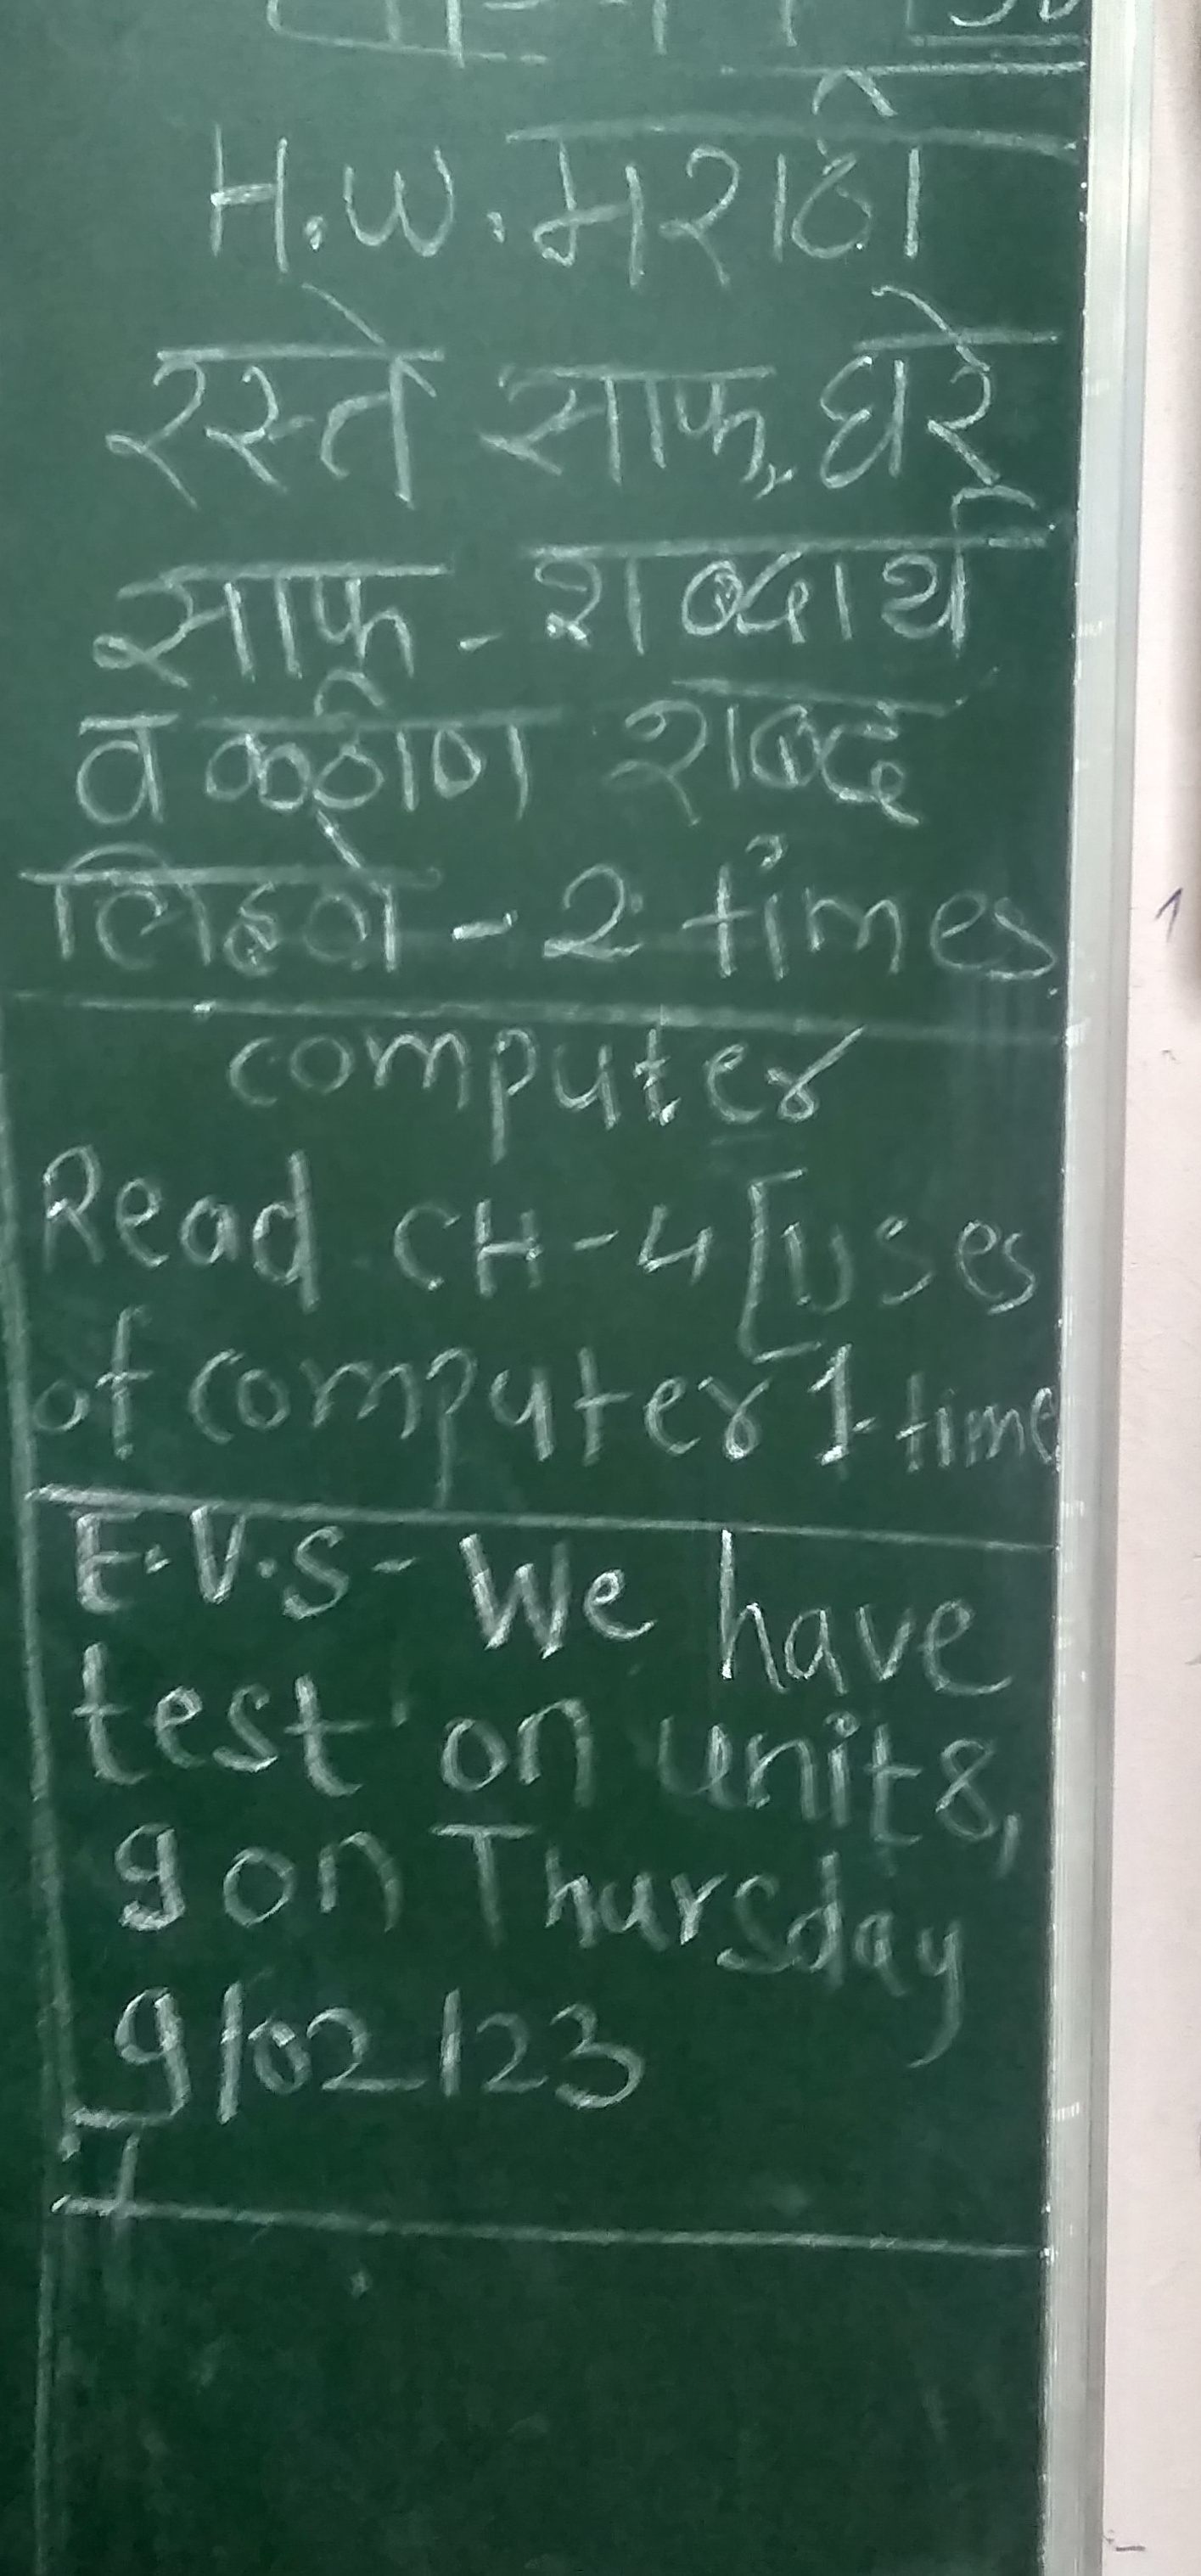 H.W. मराठी
रस्ते साफ, घरे
साफ - शब्दार्थ
व कठीण शब्द
लिहणे - 2 times
computer
Read CH-4 [uses
of computer 1 time
E.V.S - We have
test on unit 8,
9 on Thursday
9/02/23